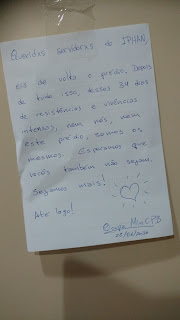 Queridos servidores do IPHAN,
eis de volta o prédio. Depois
de tudo isso, desses 34 dias
de resistências e vivências
intensas, nem nós, nem
este prédio, somos os
mesmos. Esperamos que
vocês também não sejam.
Sejamos mais!
Até logo!
MinC PB